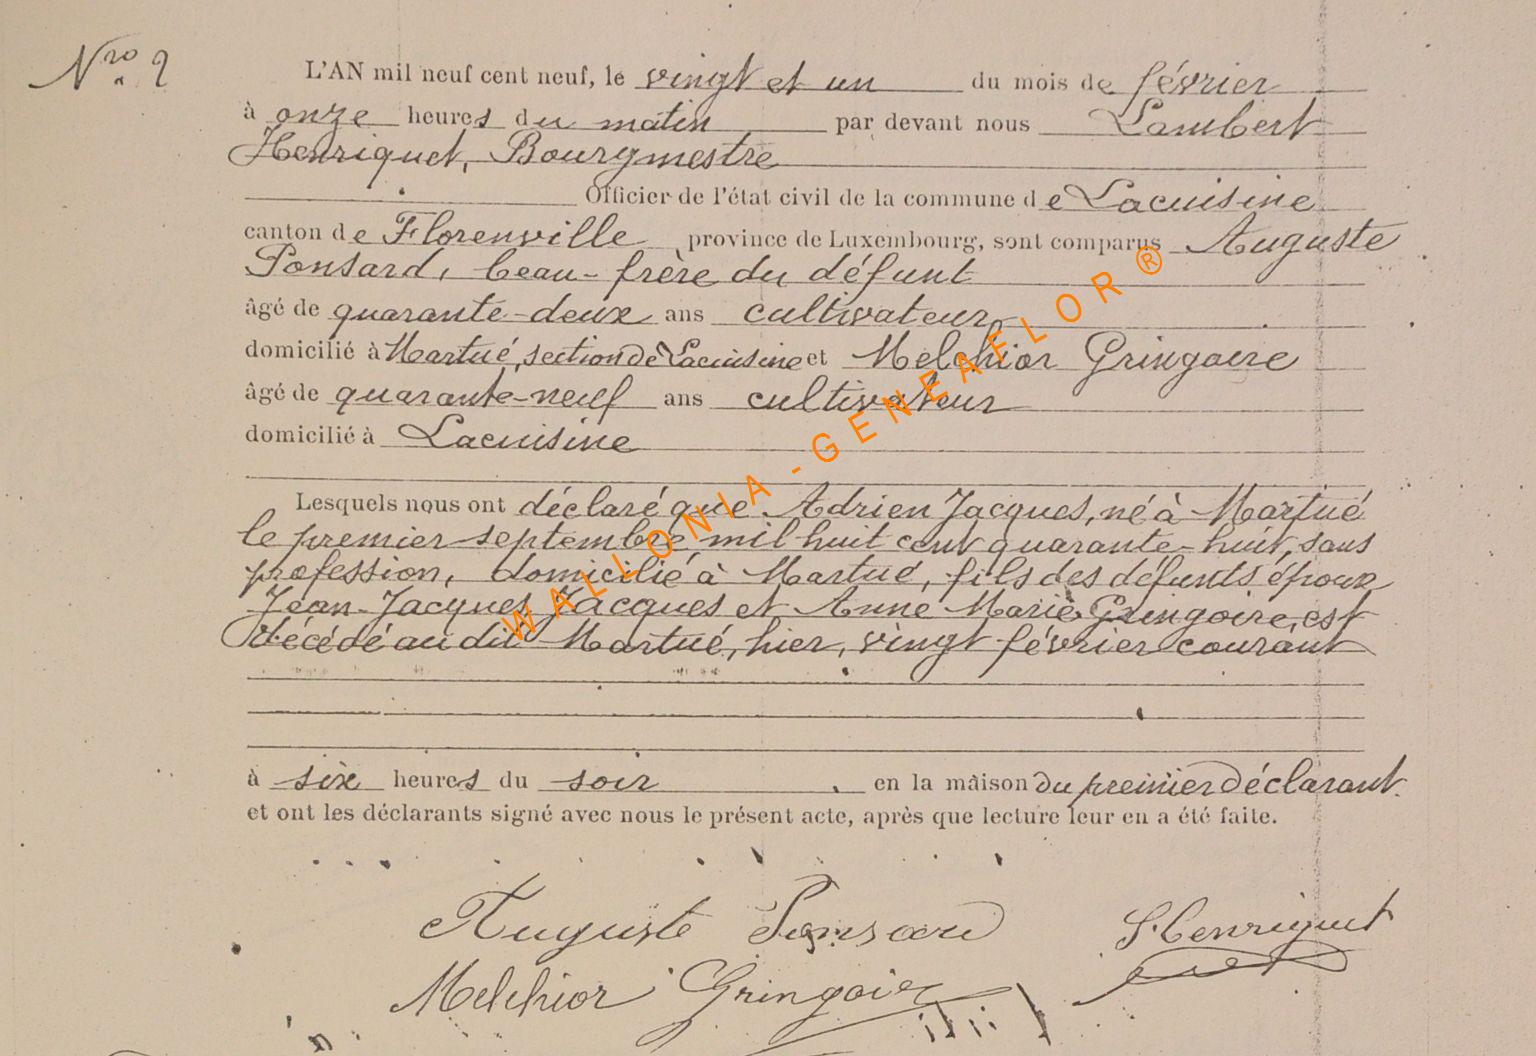 Nro 2
L'AN mil neuf cent neuf, le vingt et un du mois de février
à onze heures du matin par devant nous Lambert
Henriquet, Bourgmestre
Officier de l'état civil de la commune de Lacuisine
canton de Florenville province de Luxembourg, sont comparus Auguste
Ponsard, beau-frère du défunt
âgé de quarante-deux ans cultivateur
domicilié à Martué, section de Lacuisine et Melchior Gringoire
âgé de quarante-neuf ans cultivateur
domicilié à Lacuisine
Lesquels nous ont déclaré que Adrien Jacques, né à Martué
le premier septembre mil huit cent quarante-huit, sans
profession, domicilié à Martué, fils des défunts époux
Jean-Jacques Jacques et Anne Marie Gringoire, est
décédé au dit Martué, hier, vingt février courant
à six heures du soir en la maison du premier déclarant.
et ont les déclarants signé avec nous le présent acte, après que lecture leur en a été faite.
Auguste Ponsard
Henriquet
Melchior Gringoire
WALLONIA-GENEAFLOR ®